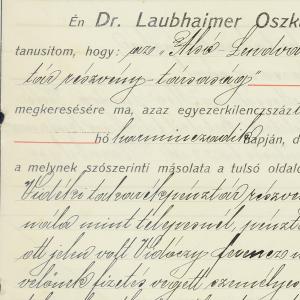 Én Dr. Laubhaimer Oszká
tanusítom, hogy: az "Alsó-Lendva
tár részvény-társaság"
megkeresésére ma, azaz egyezerkilenczszáz
hó harminczadik napján, d
a melynek szószerinti másolata a tulsó oldalo
Vidéki takarékpénztár részvé
nála mint telepesnél, pénztá
ott jelen volt Vidóczy Ferencz
velőnek fizetés végett személyes